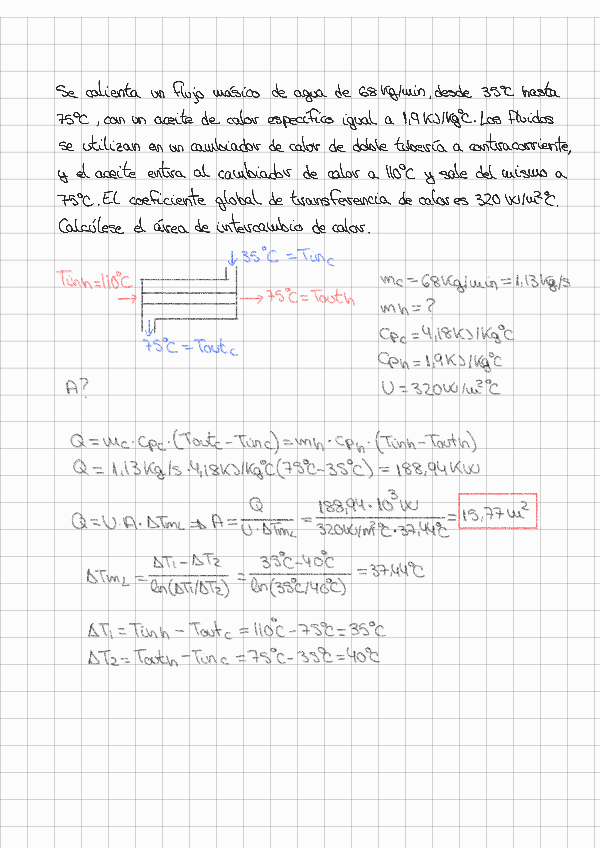 Se calienta un flujo masico de agua de 68 Kg/min, desde 35°C hasta
75°C, con un aceite de calor específico igual a 1,9 KJ/Kg°C. Los Fluidos
se utilizan en un cambiador de calor de doble tubería a contracorriente,
y el aceite entra al cambiador de calor a 110°C y sale del mismo a
75°C. El coeficiente global de transferencia de calor es 320 W/m²°C.
Calcúlese el área de intercambio de calor.
35°C = Tinc
Tinh=110°C
75°C=Touth
75°C=Toutc
mc=68Kg/min=1,13kg/s
mh=?
Cpc=4,18KJ/Kg°C
Cph=1,9KJ/Kg°C
U=320W/m²°C
A?
Q=mc·Cpc·(Toutc-Tinc)=mh·Cph·(Tinh-Touth)
Q=1,13Kg/s·4,18KJ/Kg°C(75°C-35°C)=188,94KW
Q=U·A·ΔTmL → A = Q / U·ΔTmL = 188,94·10³W / 320W/m²°C·37,44°C = 15,77m²
ΔTmL = ΔT1-ΔT2 / ln(ΔT1/ΔT2) = 35°C-40°C / ln(35°C/40°C) = 37,44°C
ΔT1=Tinh-Toutc=110°C-75°C=35°C
ΔT2=Touth-Tinc=75°C-35°C=40°C